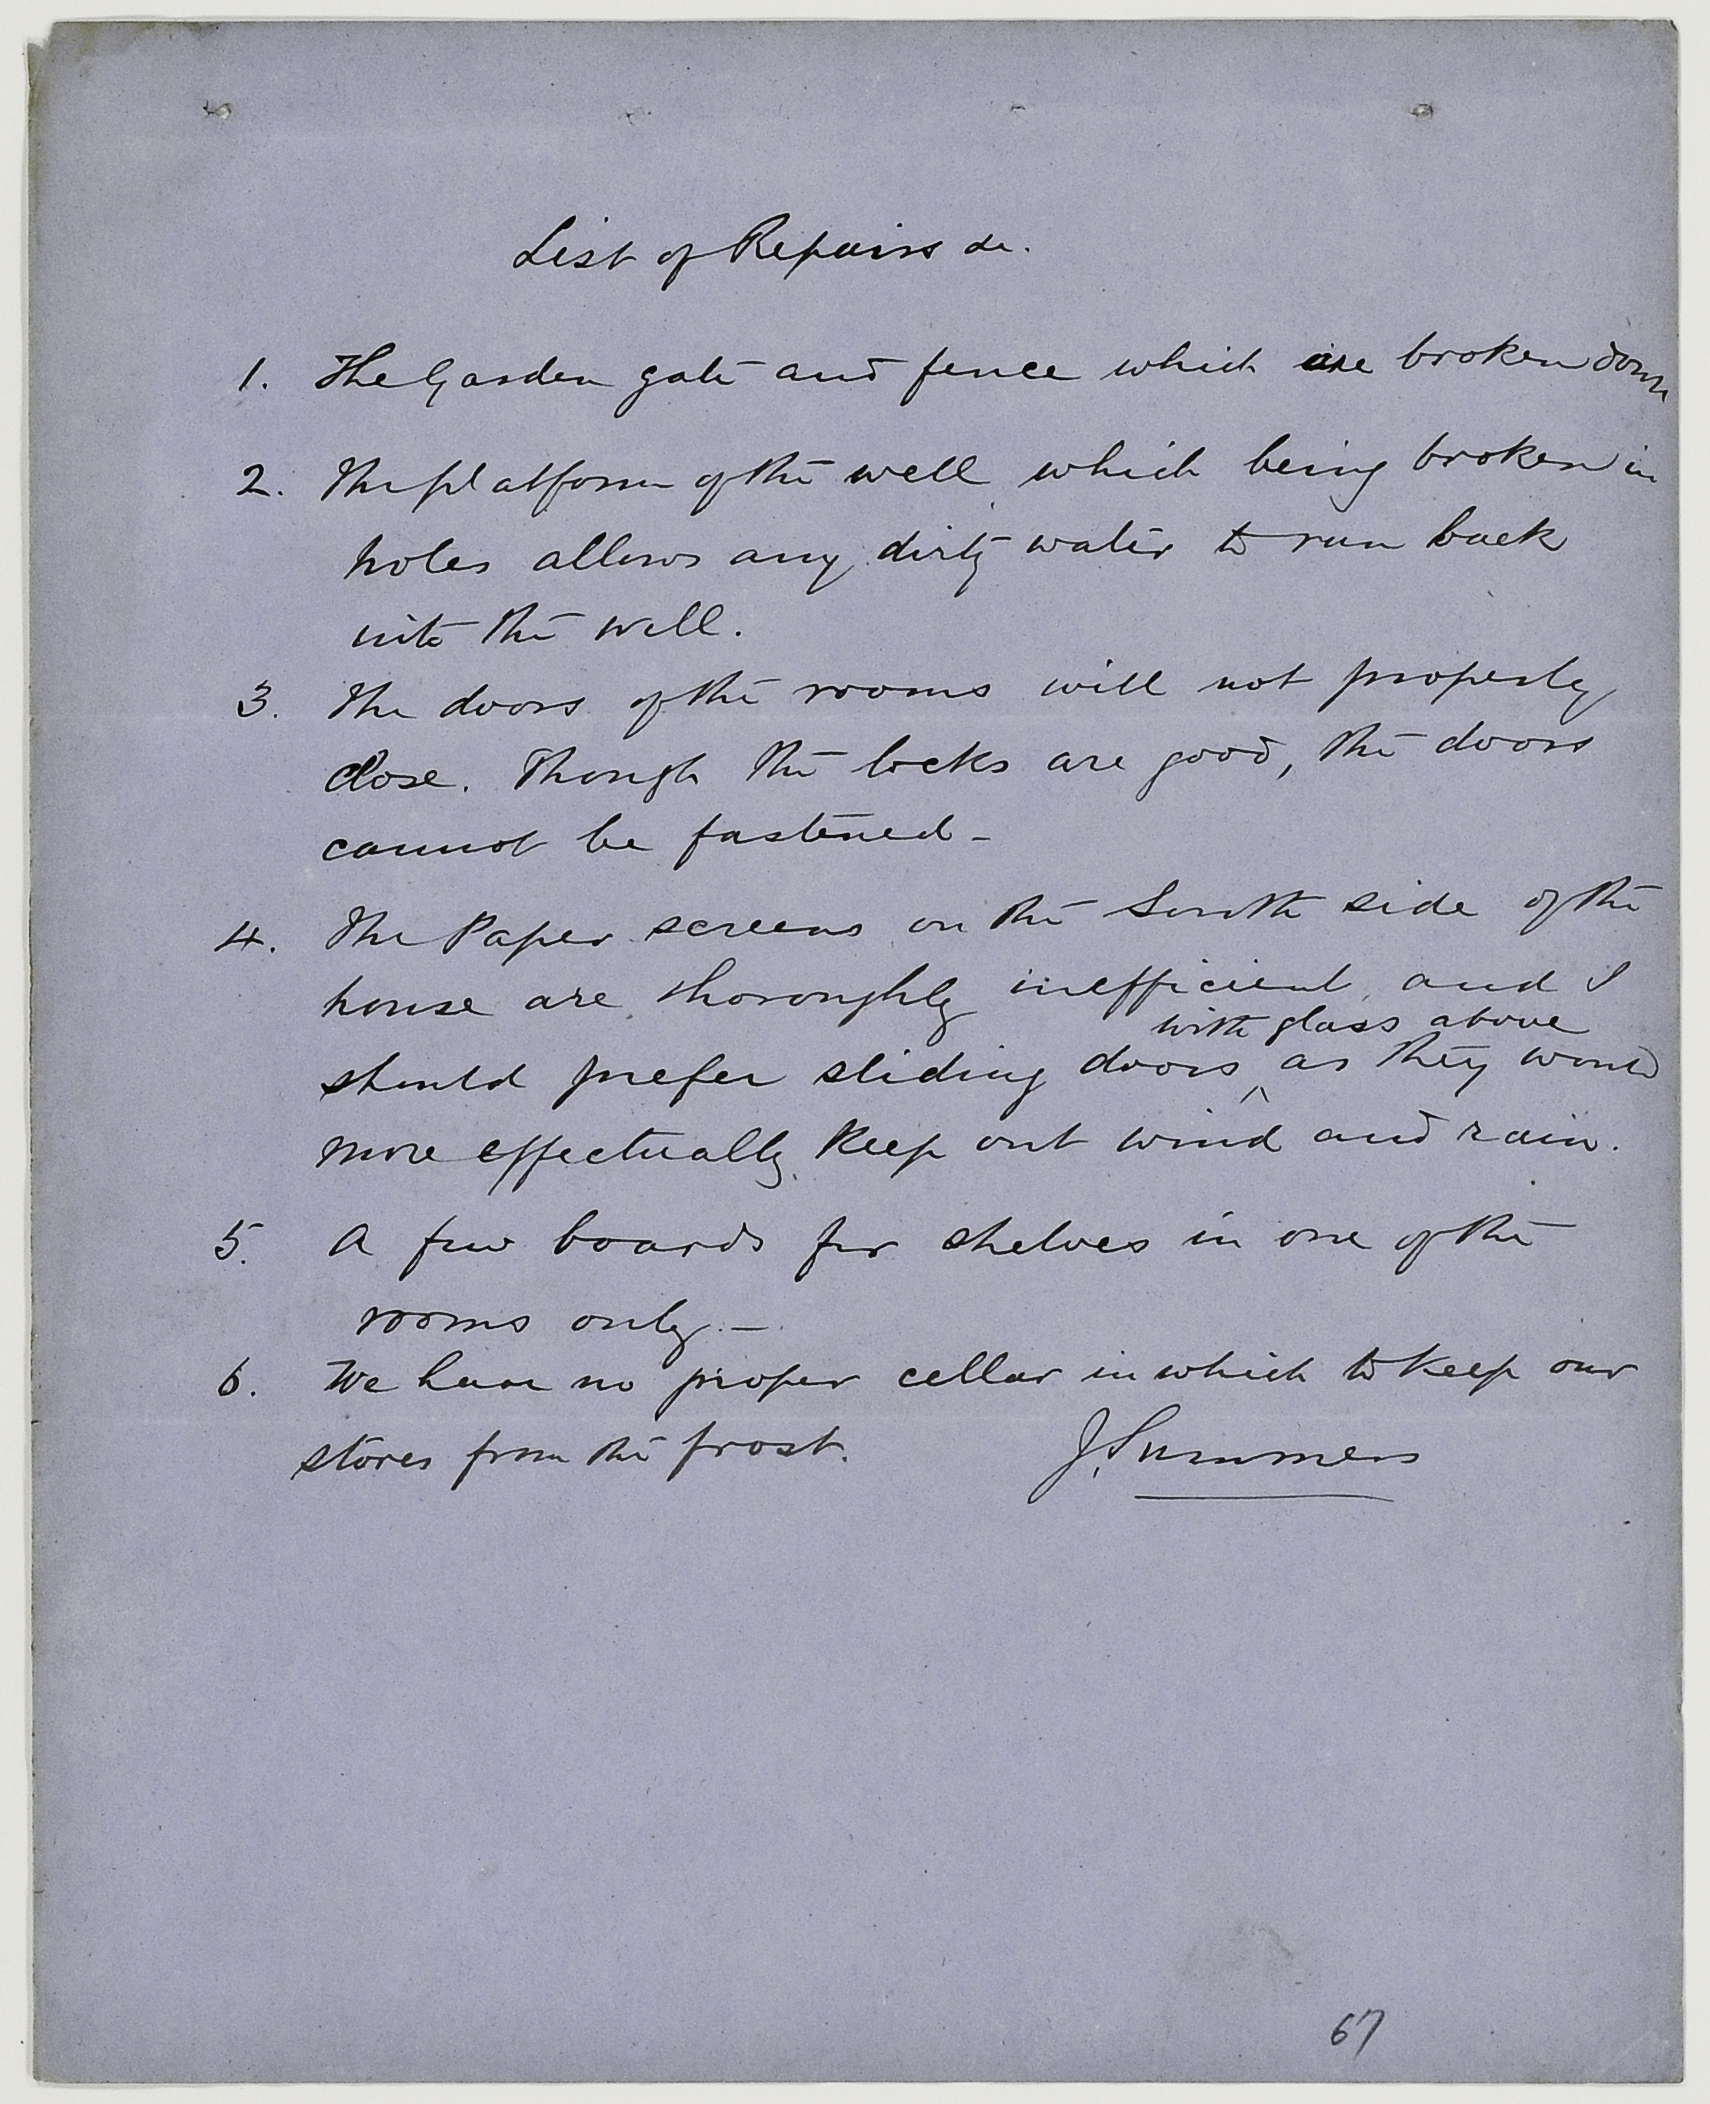 List of Repairs &c.
1. The Garden gate and fence which are broken down
2. The platform of the well which being broken in
holes allows any dirty water to run back
into the well.
3. The doors of the rooms will not properly
close. Though the locks are good, the doors
cannot be fastened -
4. The Paper screens on the South side of the
house are thoroughly inefficient, and I
with glass above
should prefer sliding doors ^ as they would
more effectually keep out wind and rain.
5. A few boards for shelves in one of the
rooms only. -
6. We have no proper cellar in which to keep our
stores from the frost. J. Summers
67